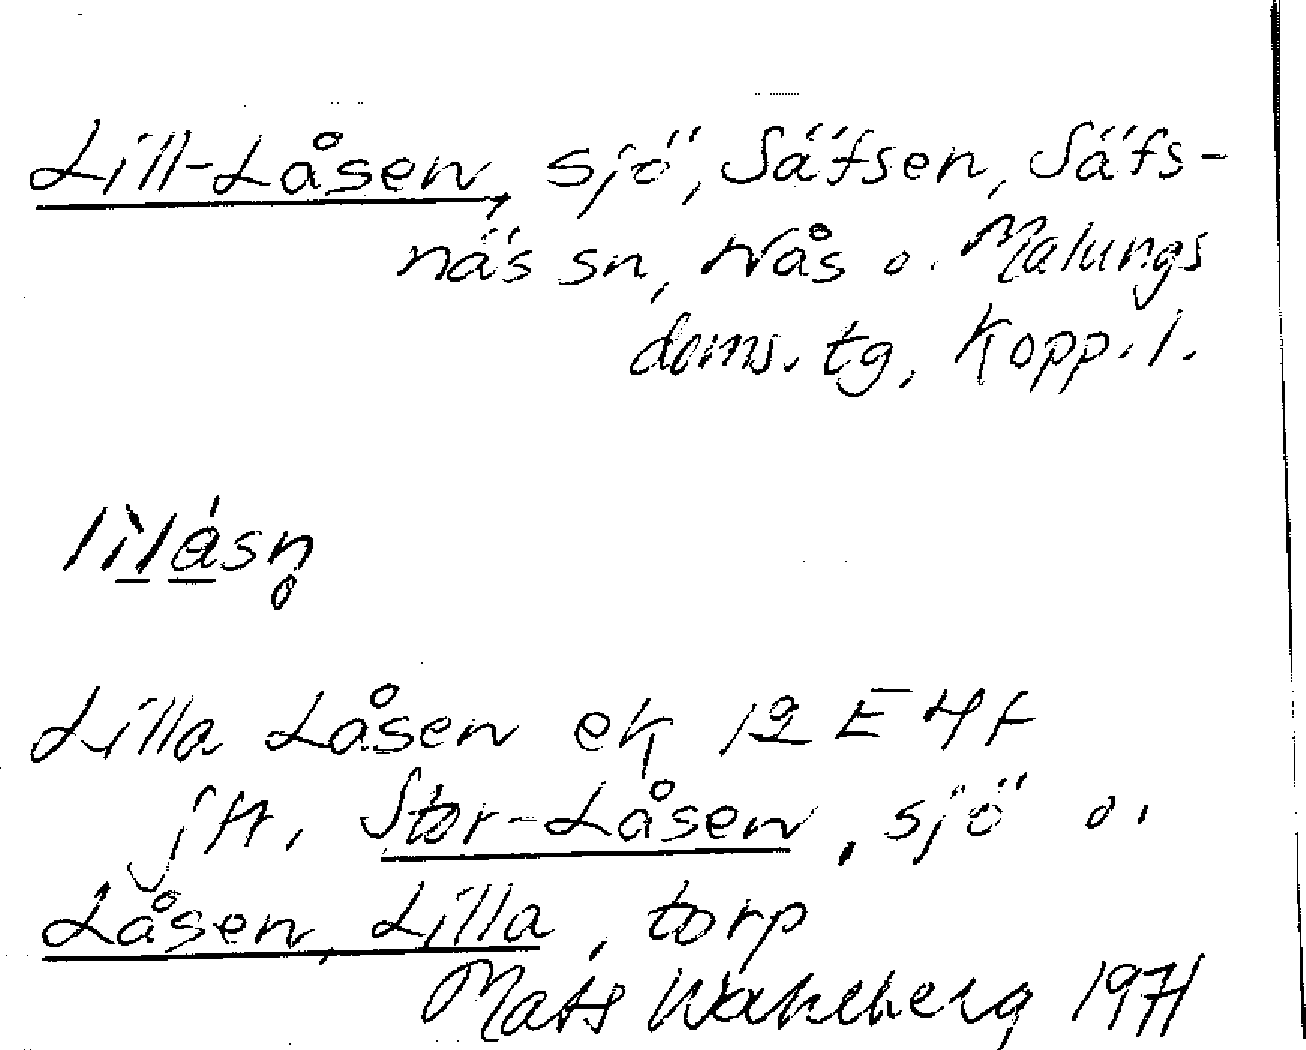 Lill-Låsen, sjö, Säfsen, Säfs-
näs sn, Nås o. Malungs
doms. tg, Kopp. l.
Lilla Låsen ek 12 E 4 f
jfr. Stor-Låsen, sjö o.
Låsen, Lilla, torp
Mats Wahlberg 1971